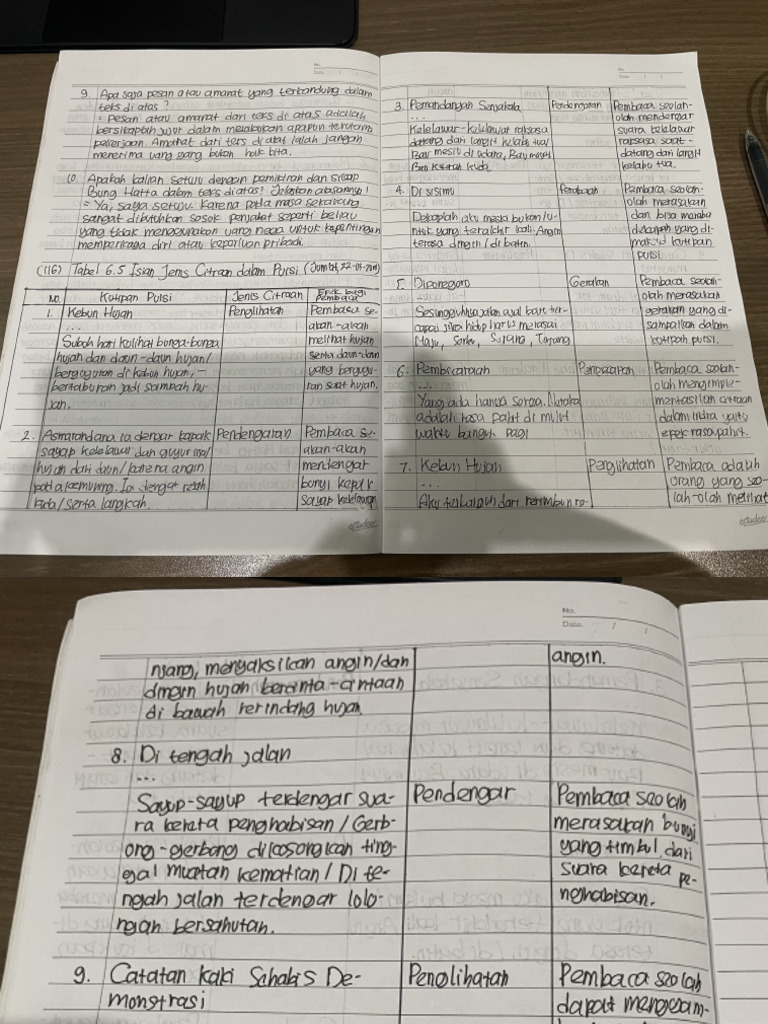 No.
Date / /
9. Apa saja pesan atau amarat yang terkandung dalam
teks di atas ?
: Pesan atau amanat dari teks di atas adalah
bersikaplah jujur dalam melakukan apapun terutama
pekerjaan. Amanat dari teks di atas ialah jangan
menerima uang yang bukan hak kita.
10. Apakah kalian setuju dengan pemikiran dan sikap
Bung Hatta dalam teks di atas? Jelaskan alasannya!
= Ya, saya setuju. Karena pada masa sekarang
sangat dibutuhkan sosok penjabat seperti beliau
yang tidak menggunakan uang negara untuk kepentingan
memperkaya diri atau keperluan pribadi.
(116) Tabel 6.5 Isian Jenis Citraan dalam Puisi (Jumat, 22-01-
No. Kutipan Puisi Jenis Citraan Efek bagi
Pembaca
1. Kebun Hujan Penglihatan Pembaca se-
... akan-akan
Subuh hari kulihat bunga-bunga melihat hujan
hujan dan daun-daun hujan/ serta daun-daun
berguguran di kebun hujan, – yang bergugu-
bertaburan jadi sampah hu- ran saat hujan.
jan.
2. Asmarandana Ia dengar kepak Pendengaran Pembaca se-
sayap kelelawar dan guyur sisa/ akan-akan
hujan dari daun/ karena angin mendengar
pada kemuning. Ia dengar resah bunyi kepak
kuda/ serta langkah. sayap kelelawar
eStudee
No.
Date / /
3. Pemandangan Senjakala Pendengaran Pembaca seolah-
... olah mendengar
Kelelawar-kelelawar raksasa suara kelelawar
datang dari langit kelabu tua/ raksasa saat
Bau mesiu di udara, Bau mayat datang dari langit
Bau kotoran kuda. kelabu tua.
4. Di sisimu Perabaan Pembaca seolah-
... olah merasakan
Dekaplah aku meski bukan/u- dan bisa meraba
ntuk yang terakhir kali. Angin dekapan yang di-
terasa dingin/ di batin. maksud kutipan
puisi.
5. Diponegoro Gerakan Pembaca seolah-
... olah merasakan
Sesungguhnya jalan ajal baru ter- gerakan yang di-
capai. Jika hidup harus merasai sampaikan dalam
Maju, Serbu, Serang, Terjang kutipan puisi.
6. Pembicaraan Pencecapan Pembaca seolah-
... olah mengimple-
Yang ada hanya sorga. Neraka mentasikan citraan
adalah rasa pahit di mulut dalam indra yaitu
waktu bangun pagi epek rasa pahit.
7. Kebun Hujan Penglihatan Pembaca adalah
... orang yang seo-
Aku terbangun dari rerimbun ra- lah-olah melihat
eStudee
No.
Date / /
njang, menyaksikan angin/dan angin.
dingin hujan bercinta-cintaan
di bawah rerindang hujan
8. Di tengah jalan
...
Sayup-sayup terdengar sua- Pendengar Pembaca seolah
ra kereta penghabisan / Gerb- merasakan bunyi
ong-gerbong dikosongkan ting- yang timbul dari
gal muatan kematian / Di te- suara kereta pe-
ngah jalan terdengar lolo- nghabisan.
ngan bersahutan.
9. Catatan Kaki Sehabis De- Penglihatan Pembaca seolah
monstrasi dapat mengeam-